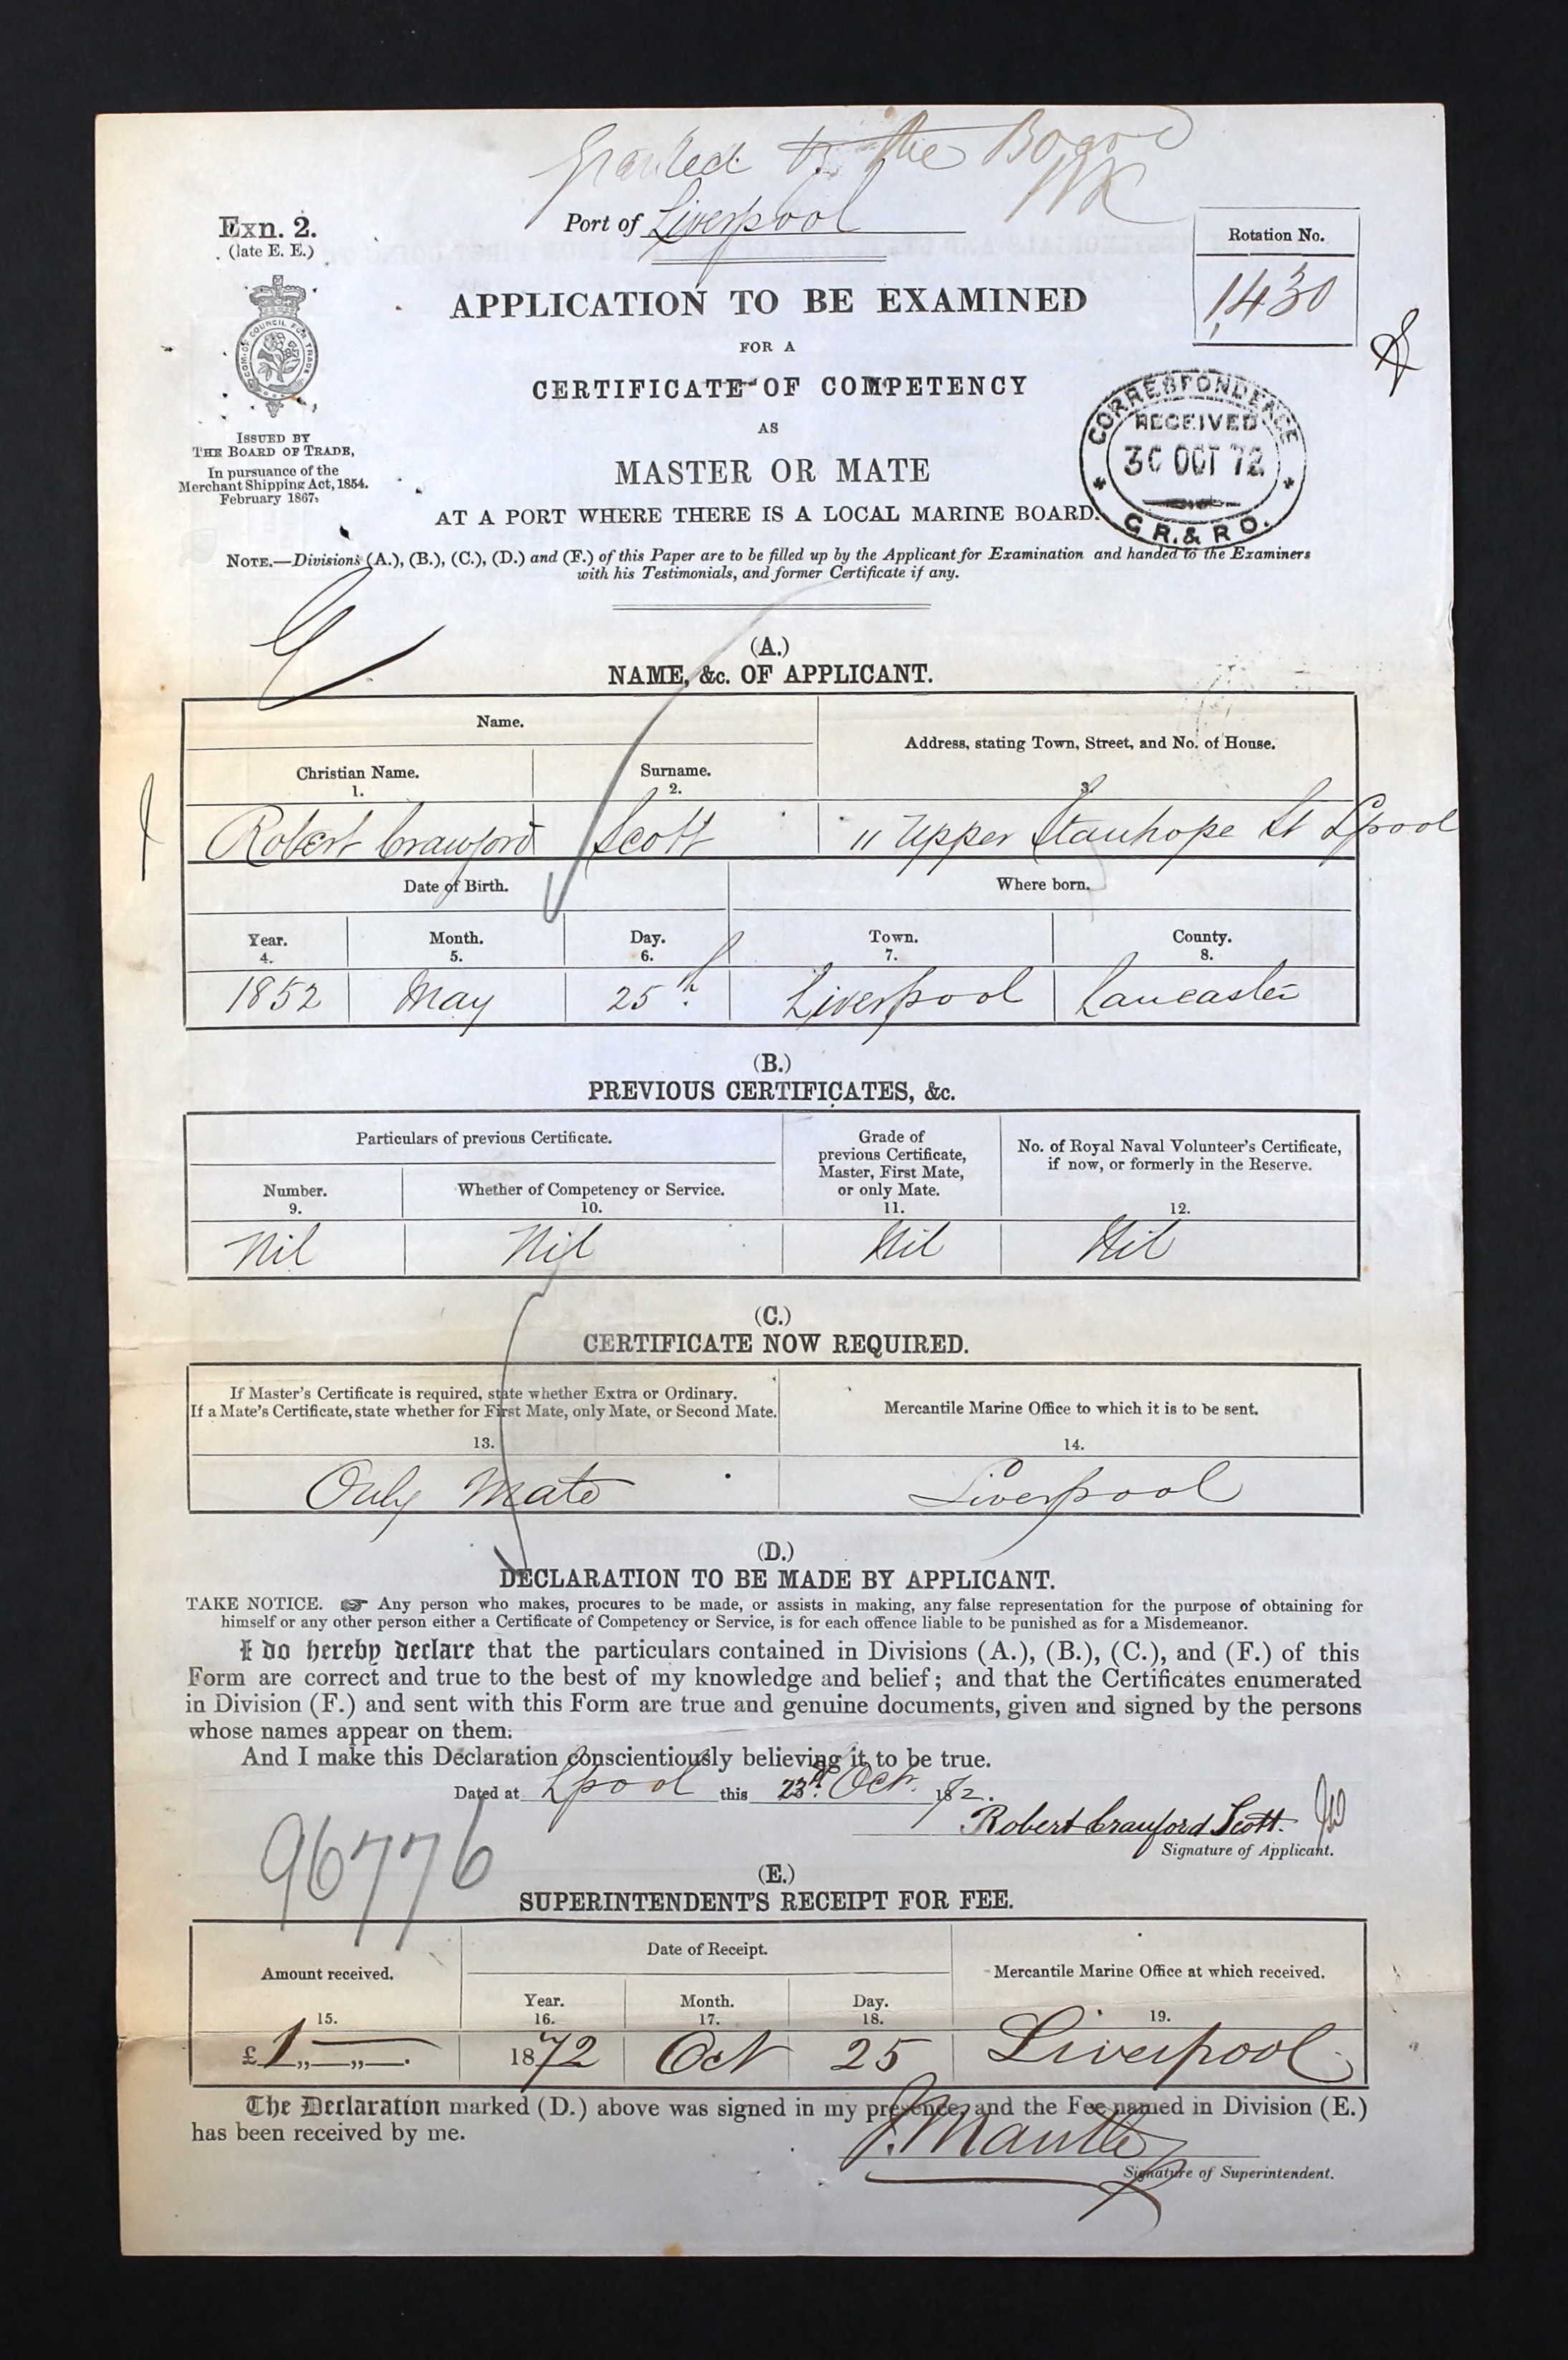 Granted by the Board
WK
Exn. 2.
(late E. E.)
Port of Liverpool
Rotation No.
1,430
COM. OF COUNCIL FOR TRADE
APPLICATION TO BE EXAMINED
FOR A
CERTIFICATE OF COMPETENCY
AS
MASTER OR MATE
AT A PORT WHERE THERE IS A LOCAL MARINE BOARD.
ISSUED BY
THE BOARD OF TRADE,
In pursuance of the
Merchant Shipping Act, 1854.
February 1867.
CORRESPONDENCE
RECEIVED
30 OCT 72
G. R. & R O.
NOTE.—Divisions (A.), (B.), (C.), (D.) and (F.) of this Paper are to be filled up by the Applicant for Examination and handed to the Examiners
with his Testimonials, and former Certificate if any.
(A.)
NAME, &c. OF APPLICANT.
Name.
Address, stating Town, Street, and No. of House.
Christian Name.
Surname.
1.
2.
3.
Robert Crawford Scott 11 Upper Stanhope St Lpool
Date of Birth.
Where born.
Year.
Month.
Day.
Town.
County.
4.
5.
6.
7.
8.
1852 May 25th Liverpool Lancaster
(B.)
PREVIOUS CERTIFICATES, &c.
Particulars of previous Certificate.
Grade of
previous Certificate,
Master, First Mate,
or only Mate.
No. of Royal Naval Volunteer's Certificate,
if now, or formerly in the Reserve.
Number.
Whether of Competency or Service.
9.
10.
11.
12.
Nil Nil Nil Nil
(C.)
CERTIFICATE NOW REQUIRED.
If Master's Certificate is required, state whether Extra or Ordinary.
If a Mate's Certificate, state whether for First Mate, only Mate, or Second Mate.
Mercantile Marine Office to which it is to be sent.
13.
14.
Only Mate Liverpool
(D.)
DECLARATION TO BE MADE BY APPLICANT.
TAKE NOTICE. ☞ Any person who makes, procures to be made, or assists in making, any false representation for the purpose of obtaining for
himself or any other person either a Certificate of Competency or Service, is for each offence liable to be punished as for a Misdemeanor.
I do hereby declare that the particulars contained in Divisions (A.), (B.), (C.), and (F.) of this
Form are correct and true to the best of my knowledge and belief; and that the Certificates enumerated
in Division (F.) and sent with this Form are true and genuine documents, given and signed by the persons
whose names appear on them.
And I make this Declaration conscientiously believing it to be true.
Dated at Lpool this 23rd Oct. 1872.
Robert Crawford Scott.
Signature of Applicant.
96776
(E.)
SUPERINTENDENT'S RECEIPT FOR FEE.
Amount received.
Date of Receipt.
Mercantile Marine Office at which received.
Year.
Month.
Day.
15.
16.
17.
18.
19.
£1 „—„—. 1872 Oct 25 Liverpool
The Declaration marked (D.) above was signed in my presence, and the Fee named in Division (E.)
has been received by me.
J. Mantle
Signature of Superintendent.